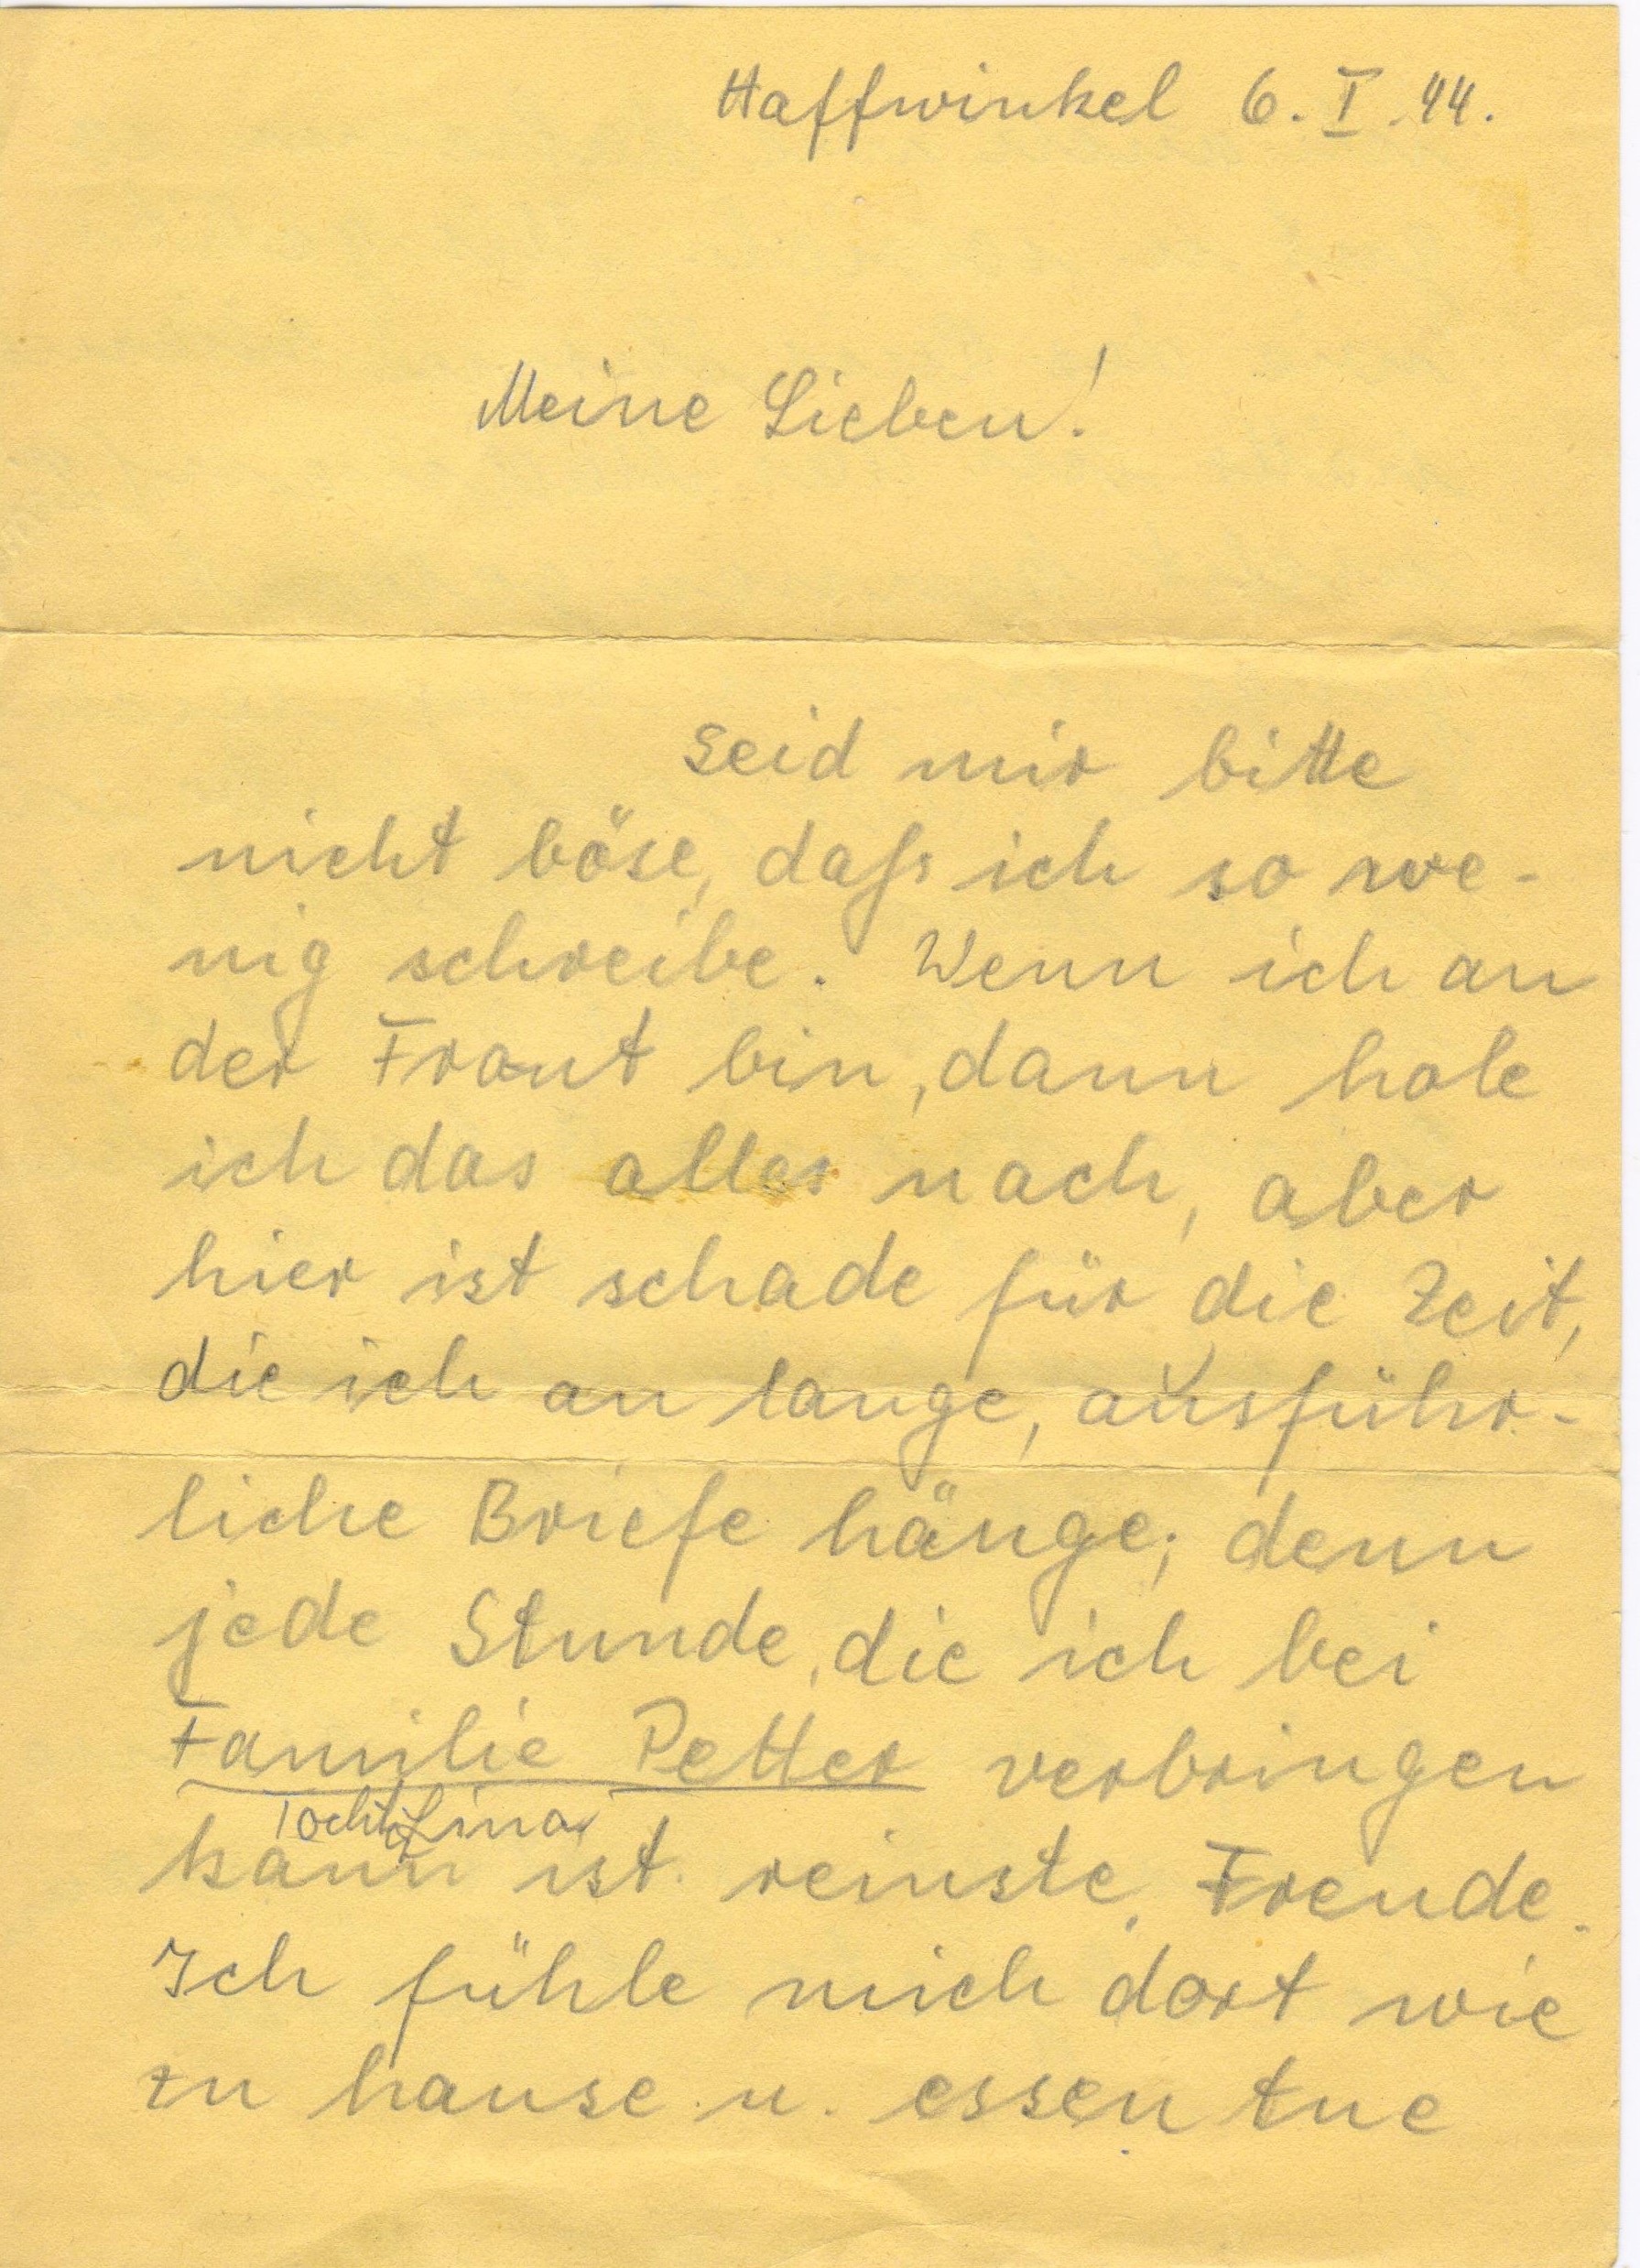 Haffwinkel 6. I. 44.
Meine Lieben!
Seid mir bitte
nicht böse, daß ich so we-
nig schreibe. Wenn ich an
der Front bin, dann hole
ich das alles nach, aber
hier ist schade für die Zeit,
die ich an lange, ausführ-
liche Briefe hänge; denn
jede Stunde, die ich bei
Familie Petter verbringen
Lina
kann ist reinste Freude.
Ich fühle mich dort wie
zu hause u. essen tue